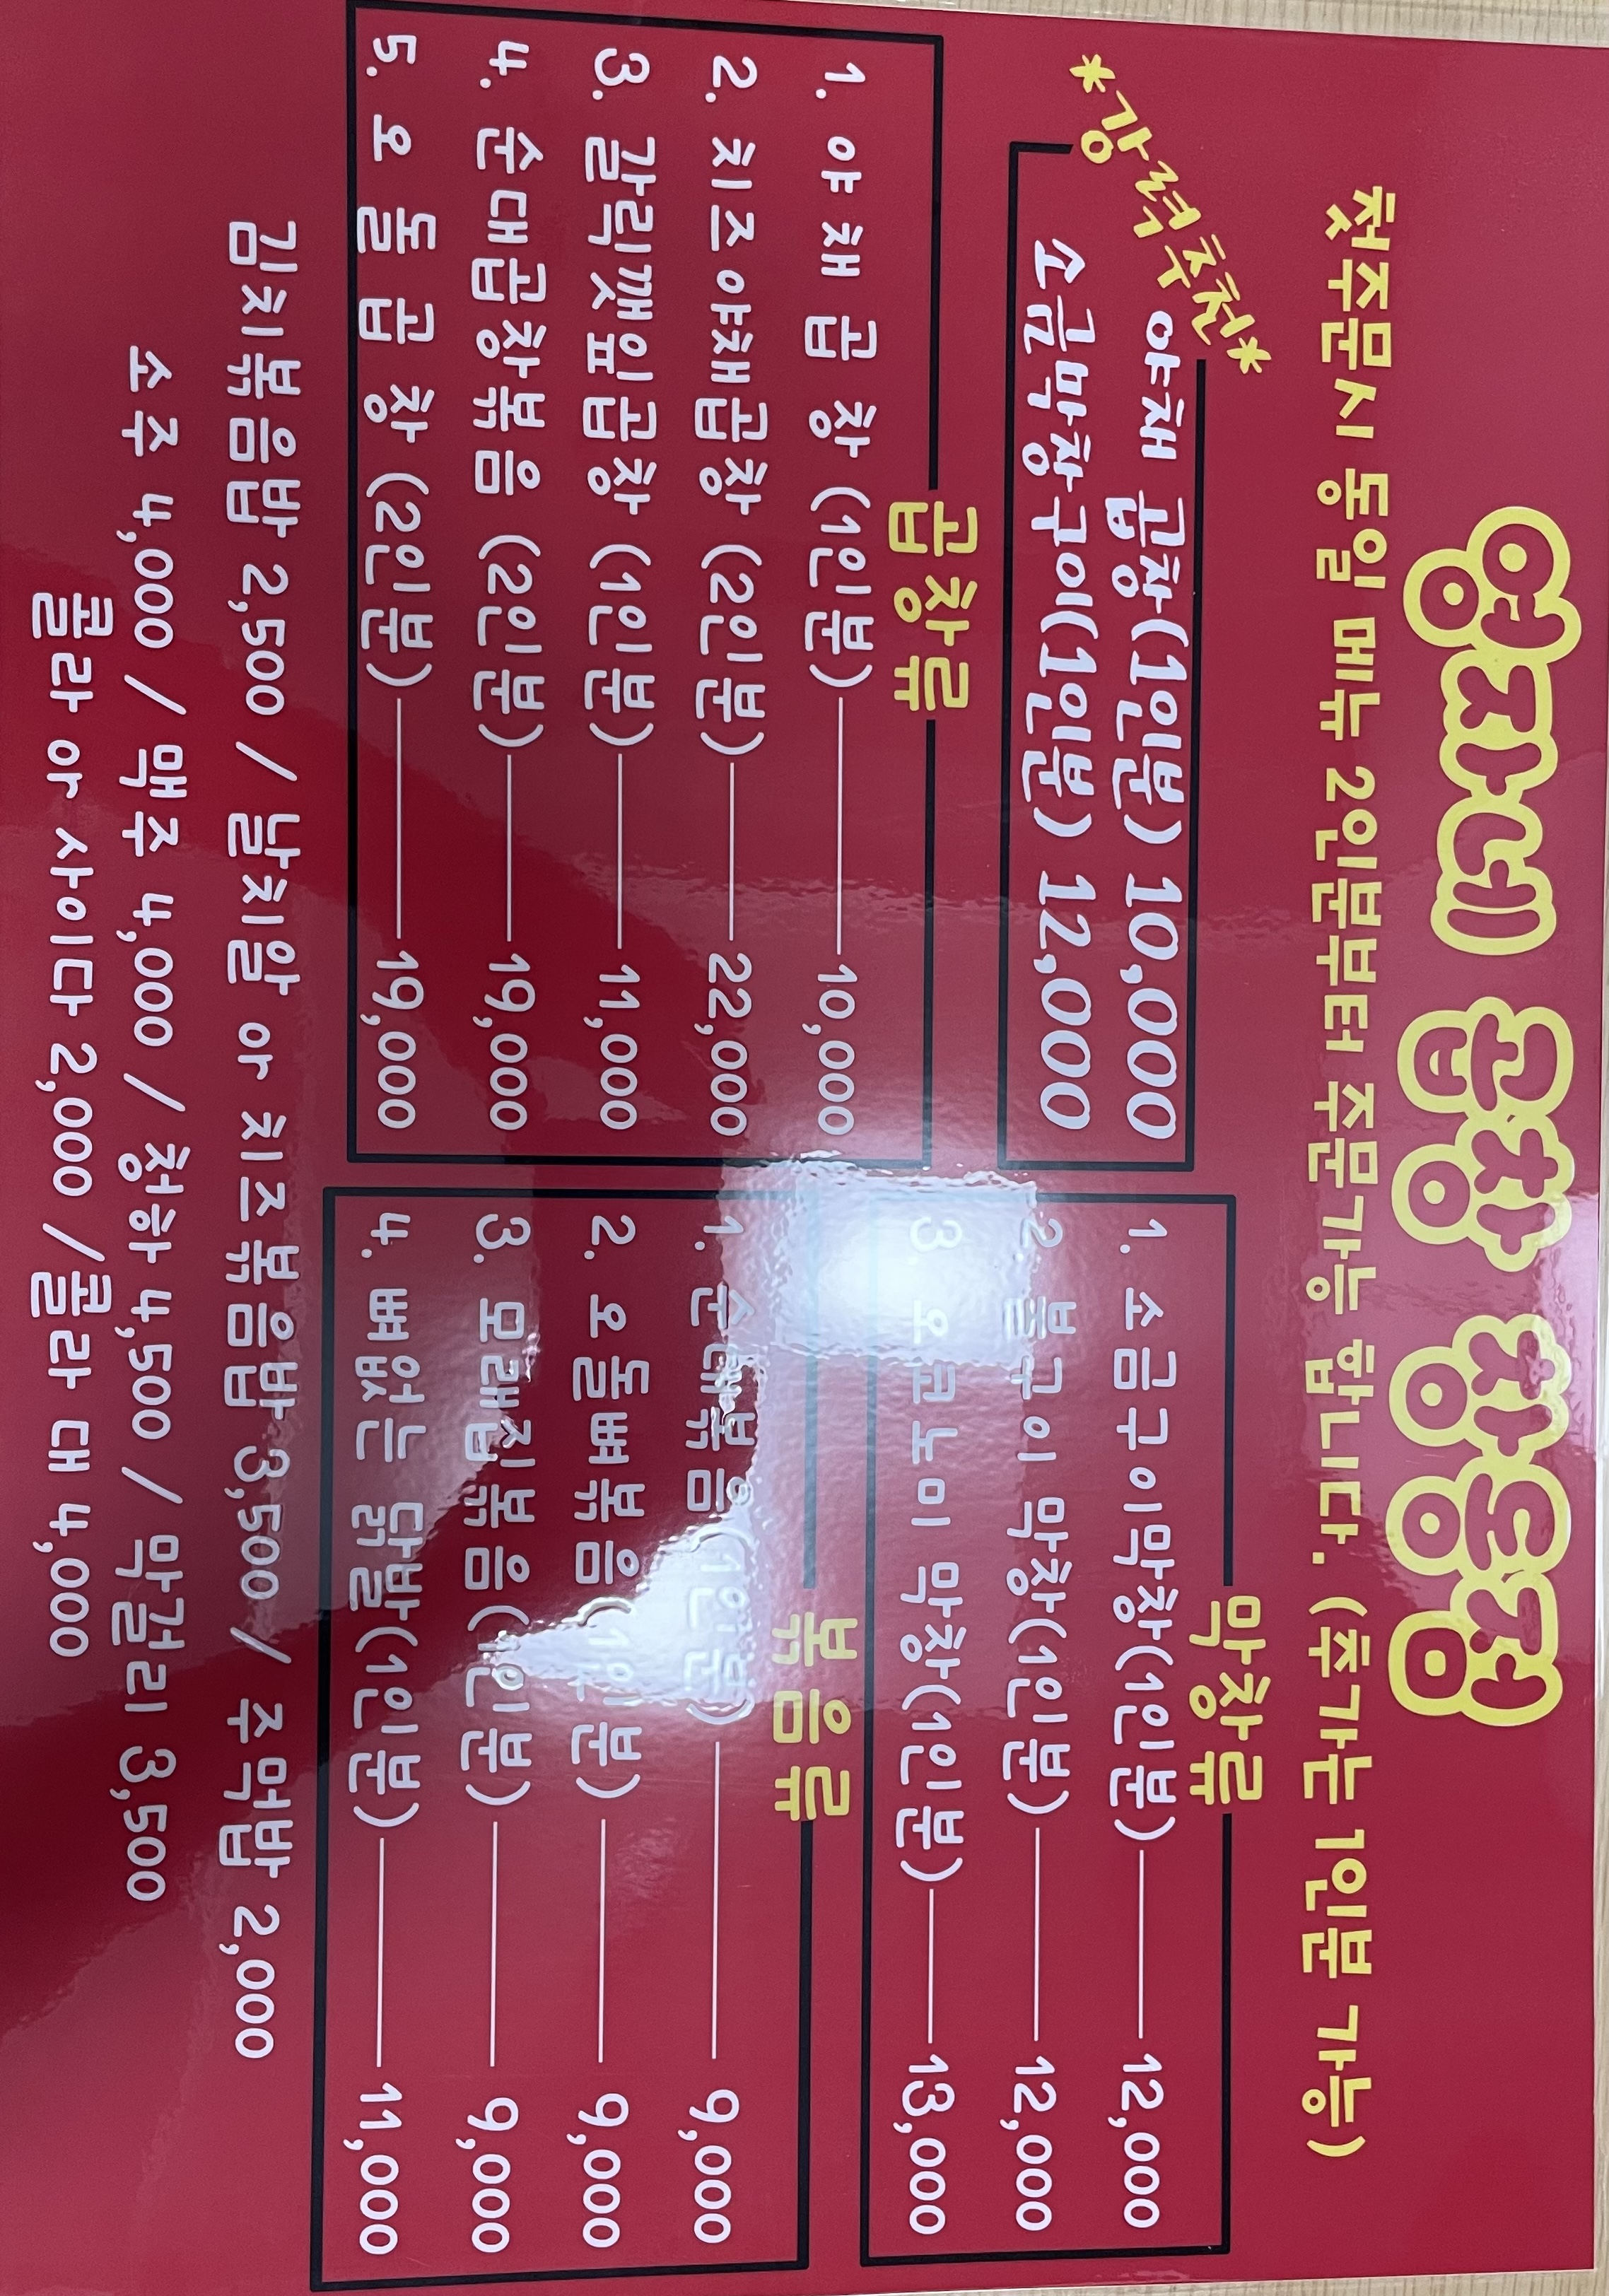 영자네 곱창 창동점
첫주문시 동일 메뉴 2인분부터 주문가능 합니다. (추가는 1인분 가능)
*강력추천*
야채 곱창(1인분) 10,000
소금막창구이(1인분) 12,000
곱창류
1. 야 채 곱 창 (1인분) 10,000
2. 치즈야채곱창 (2인분) 22,000
3. 갈릭깻잎곱창 (1인분) 11,000
4. 순대곱창볶음 (2인분) 19,000
5. 오 돌 곱 창 (2인분) 19,000
막창류
1. 소금구이막창(1인분) 12,000
2. 불구이 막창(1인분) 12,000
3. 오코노미 막창(1인분) 13,000
볶음류
1. 순대볶음(1인분) 9,000
2. 오돌뼈볶음 (1인분) 9,000
3. 모래집볶음(1인분) 9,000
4. 뼈없는 닭발(1인분) 11,000
김치볶음밥 2,500 / 날치알 야 치즈볶음밥 3,500 / 주먹밥 2,000
소주 4,000 / 맥주 4,000 / 청하 4,500 / 막걸리 3,500
콜라 야 사이다 2,000 /콜라 대 4,000